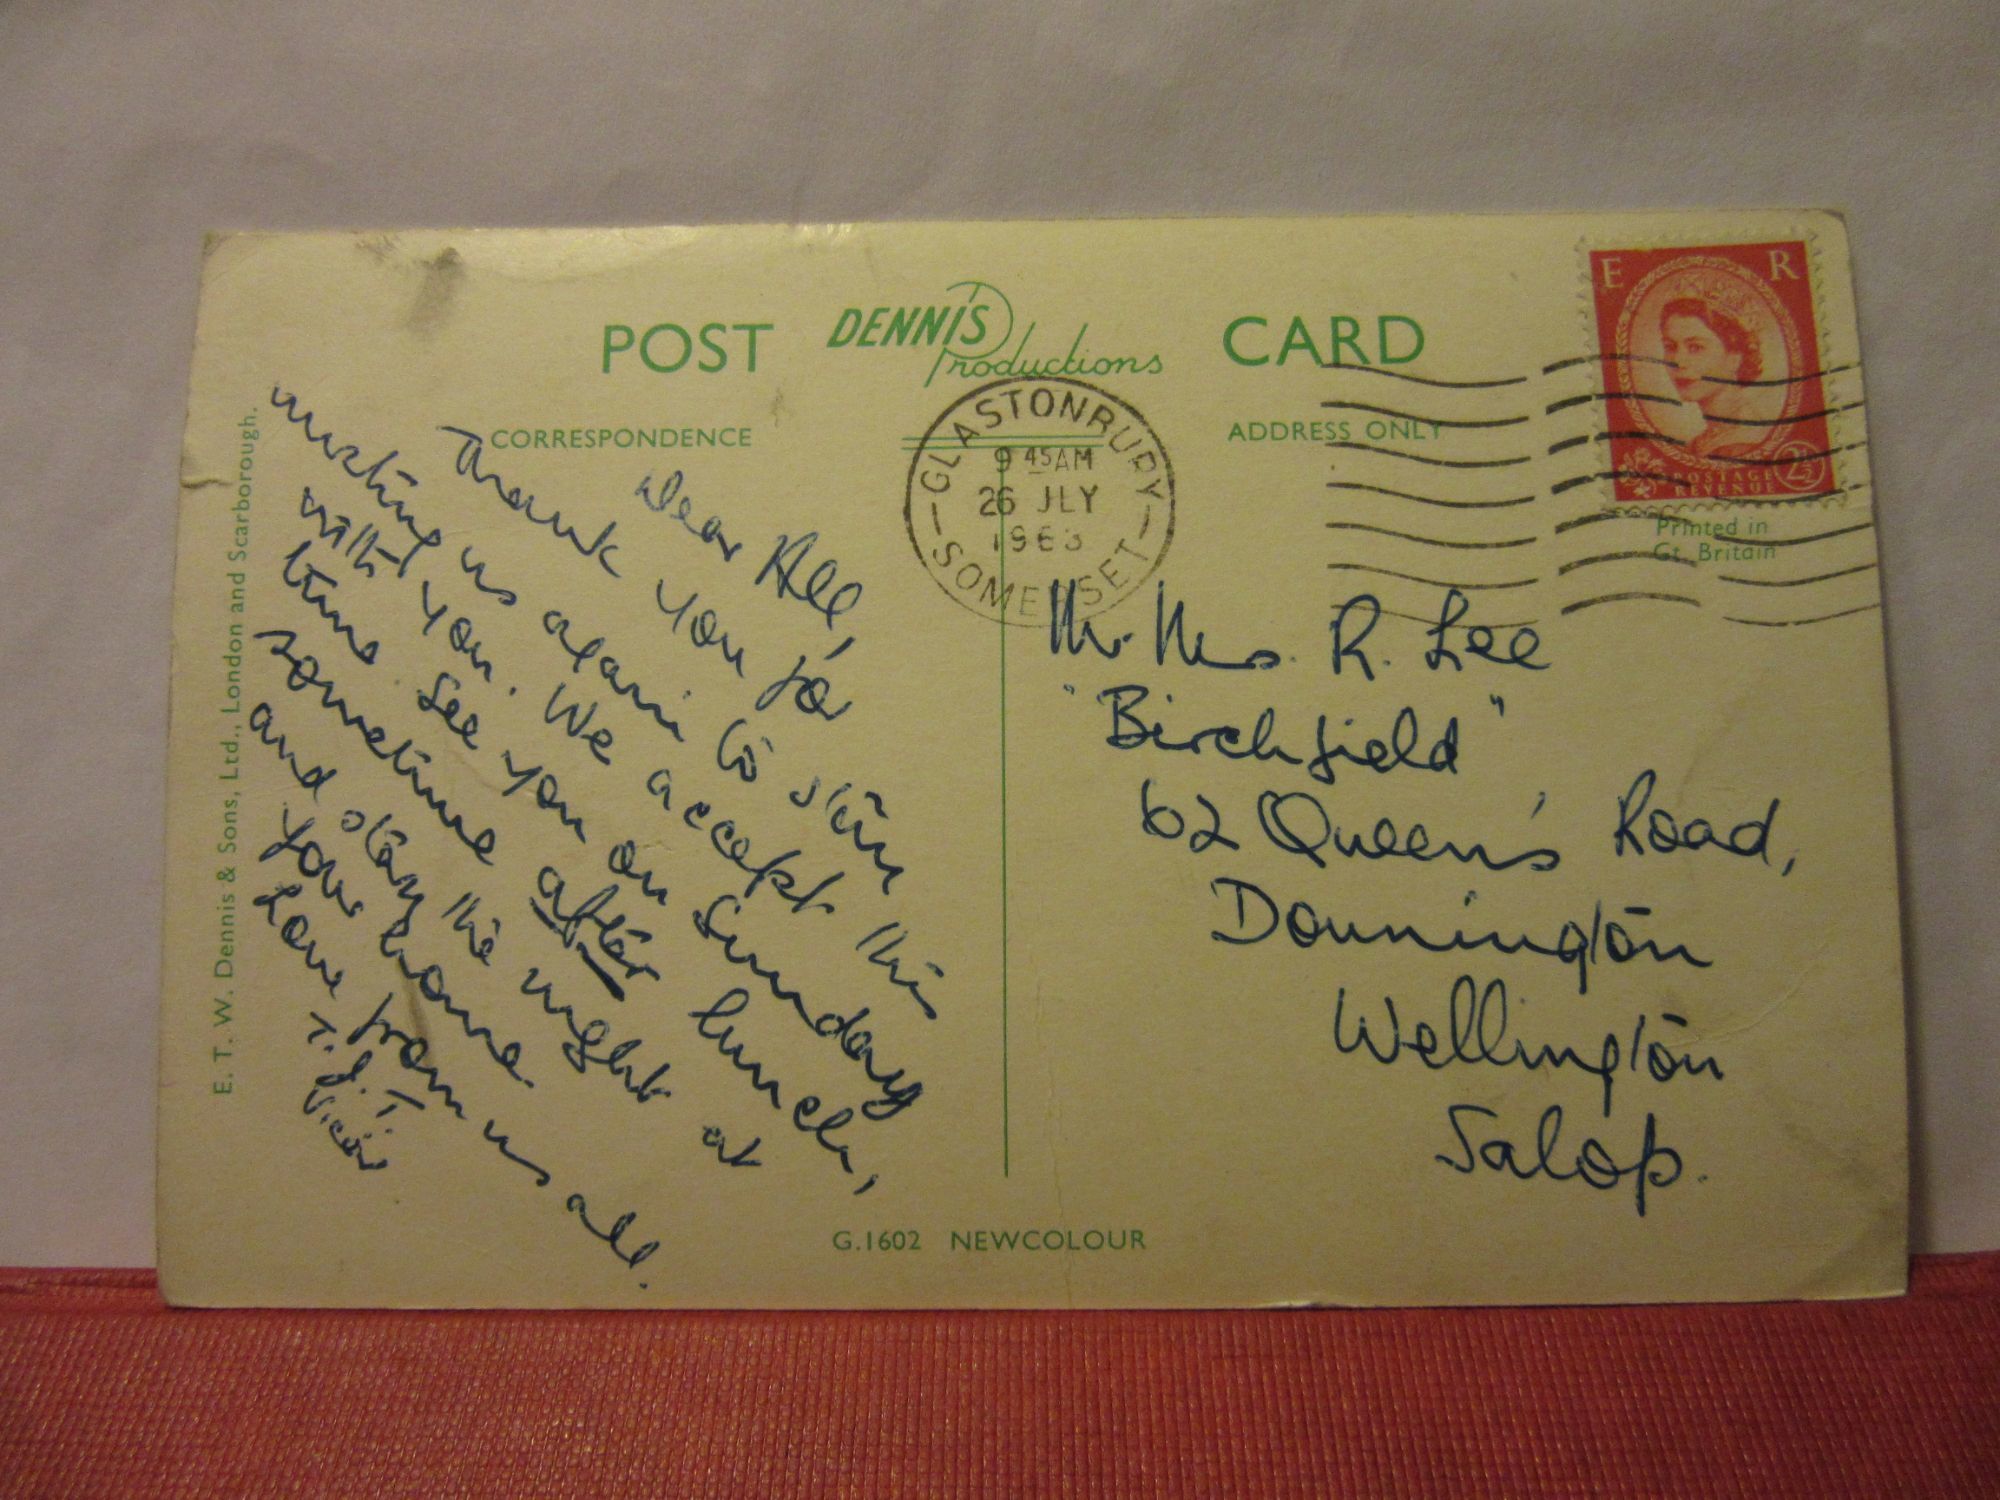 POST DENNIS Productions CARD
CORRESPONDENCE
ADDRESS ONLY
E R
POSTAGE 2½
REVENUE
Printed in
Gt. Britain
GLASTONBURY
9 45AM
26 JLY
1963
SOMERSET
Dear All,
Thank you for
writing us again to stay
with you. We accept this
time. See you on Sunday
sometime after lunch,
and stay the night at
your home.
Love from us all.
T. J. T.
Mr. Mrs. R. Lee
"Birchfield"
62 Queen's Road,
Donnington
Wellington
Salop.
E. T. W. Dennis & Sons, Ltd., London and Scarborough.
G.1602 NEWCOLOUR